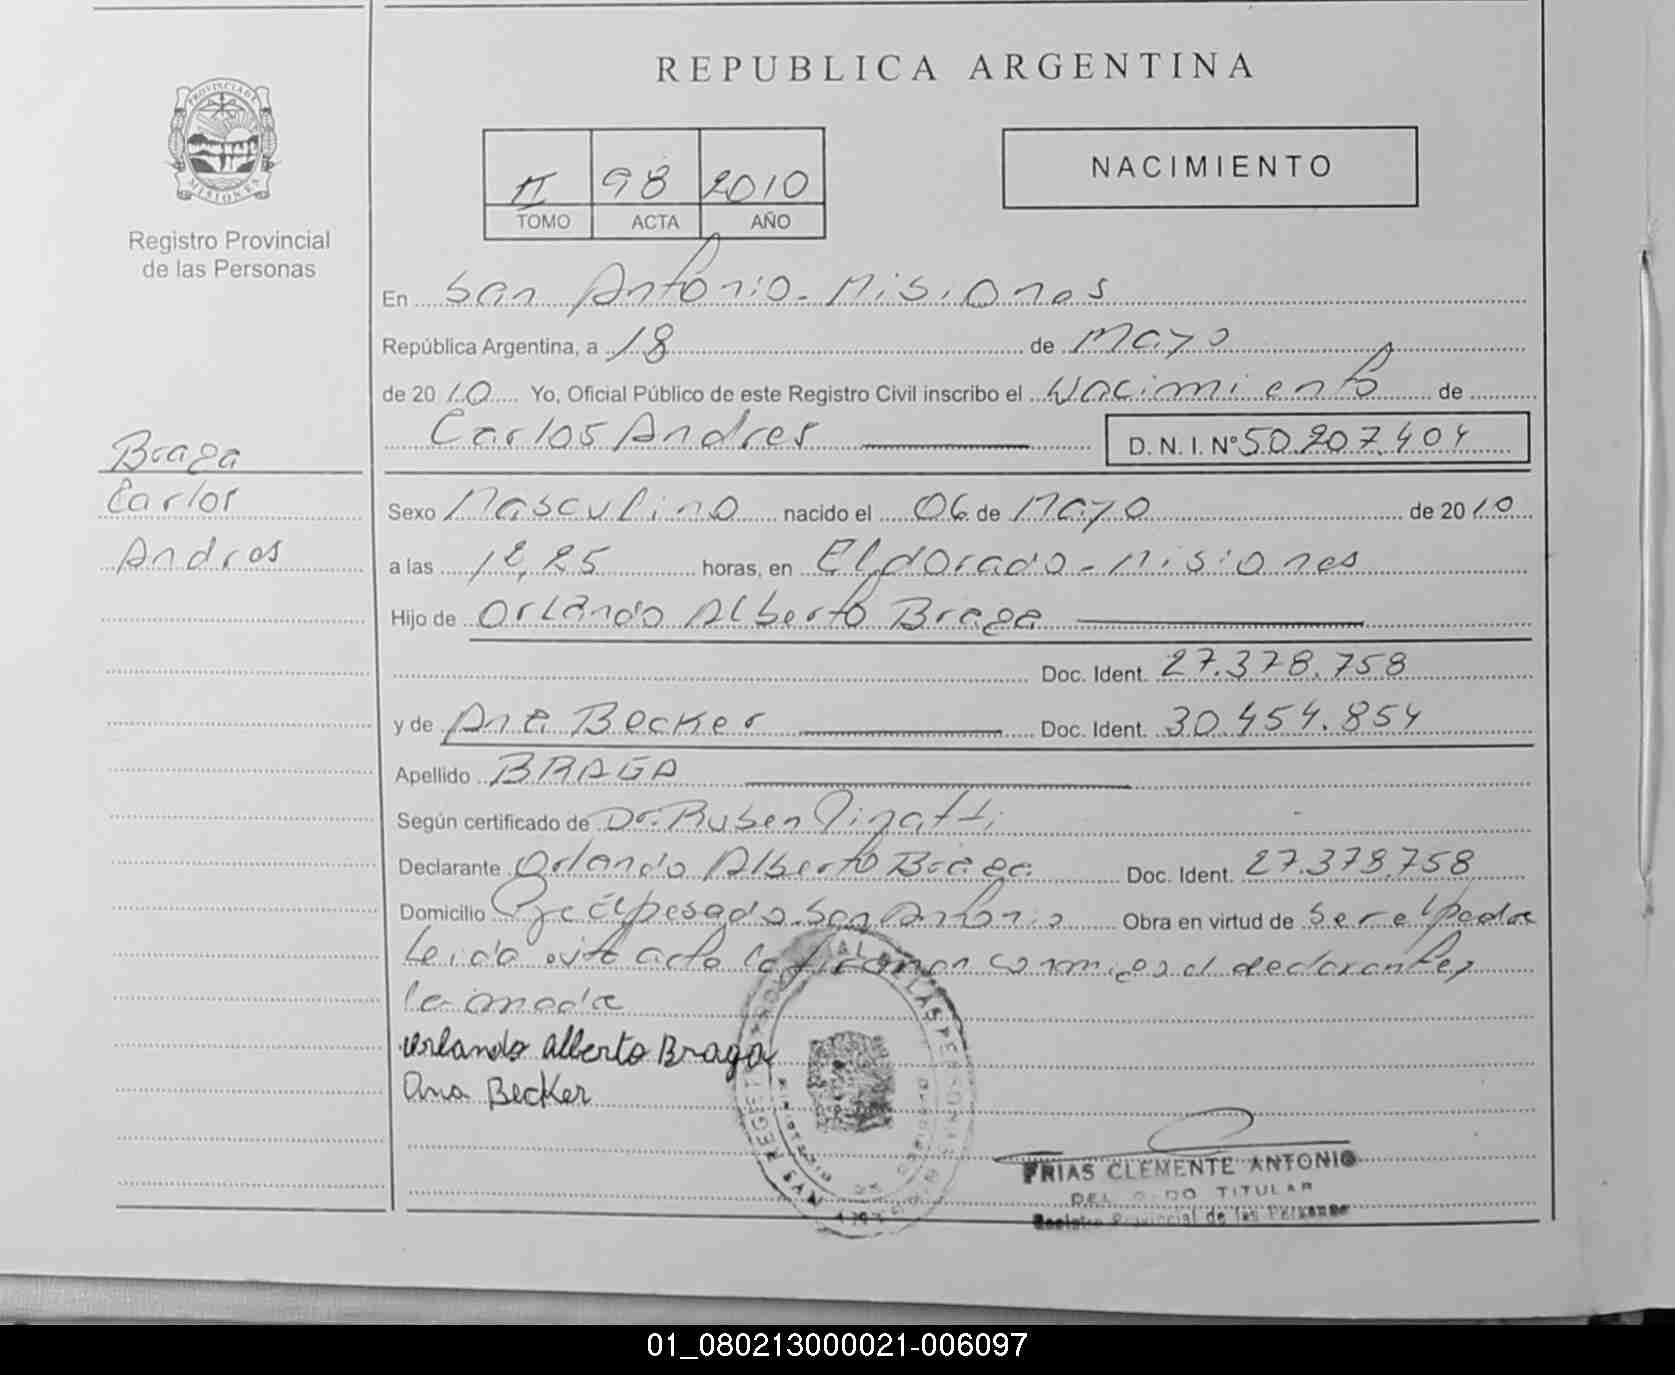 REPUBLICA ARGENTINA
PROVINCIA DE MISIONES
Registro Provincial
de las Personas
II 98 2010
TOMO ACTA AÑO
NACIMIENTO
En San Antonio - Misiones
República Argentina, a 18 de Mayo
de 2010 Yo, Oficial Público de este Registro Civil inscribo el Nacimiento de
Carlos Andres D. N. I. Nº 50.207.404
Braga
Carlos
Andres
Sexo Masculino nacido el 06 de Mayo de 2010
a las 12,25 horas, en Eldorado - Misiones
Hijo de Orlando Alberto Braga
Doc. Ident. 27.378.758
y de Ana Becker Doc. Ident. 30.454.854
Apellido BRAGA
Según certificado de Dr. Ruben
Declarante Orlando Alberto Braga Doc. Ident. 27.378.758
Domicilio San Antonio Obra en virtud de ser el padre
Leida acta la firman conmigo el declarante y
la madre
Orlando Alberto Braga
Ana Becker
FRIAS CLEMENTE ANTONIO
TITULAR
Registro Provincial de las Personas
01_080213000021-006097